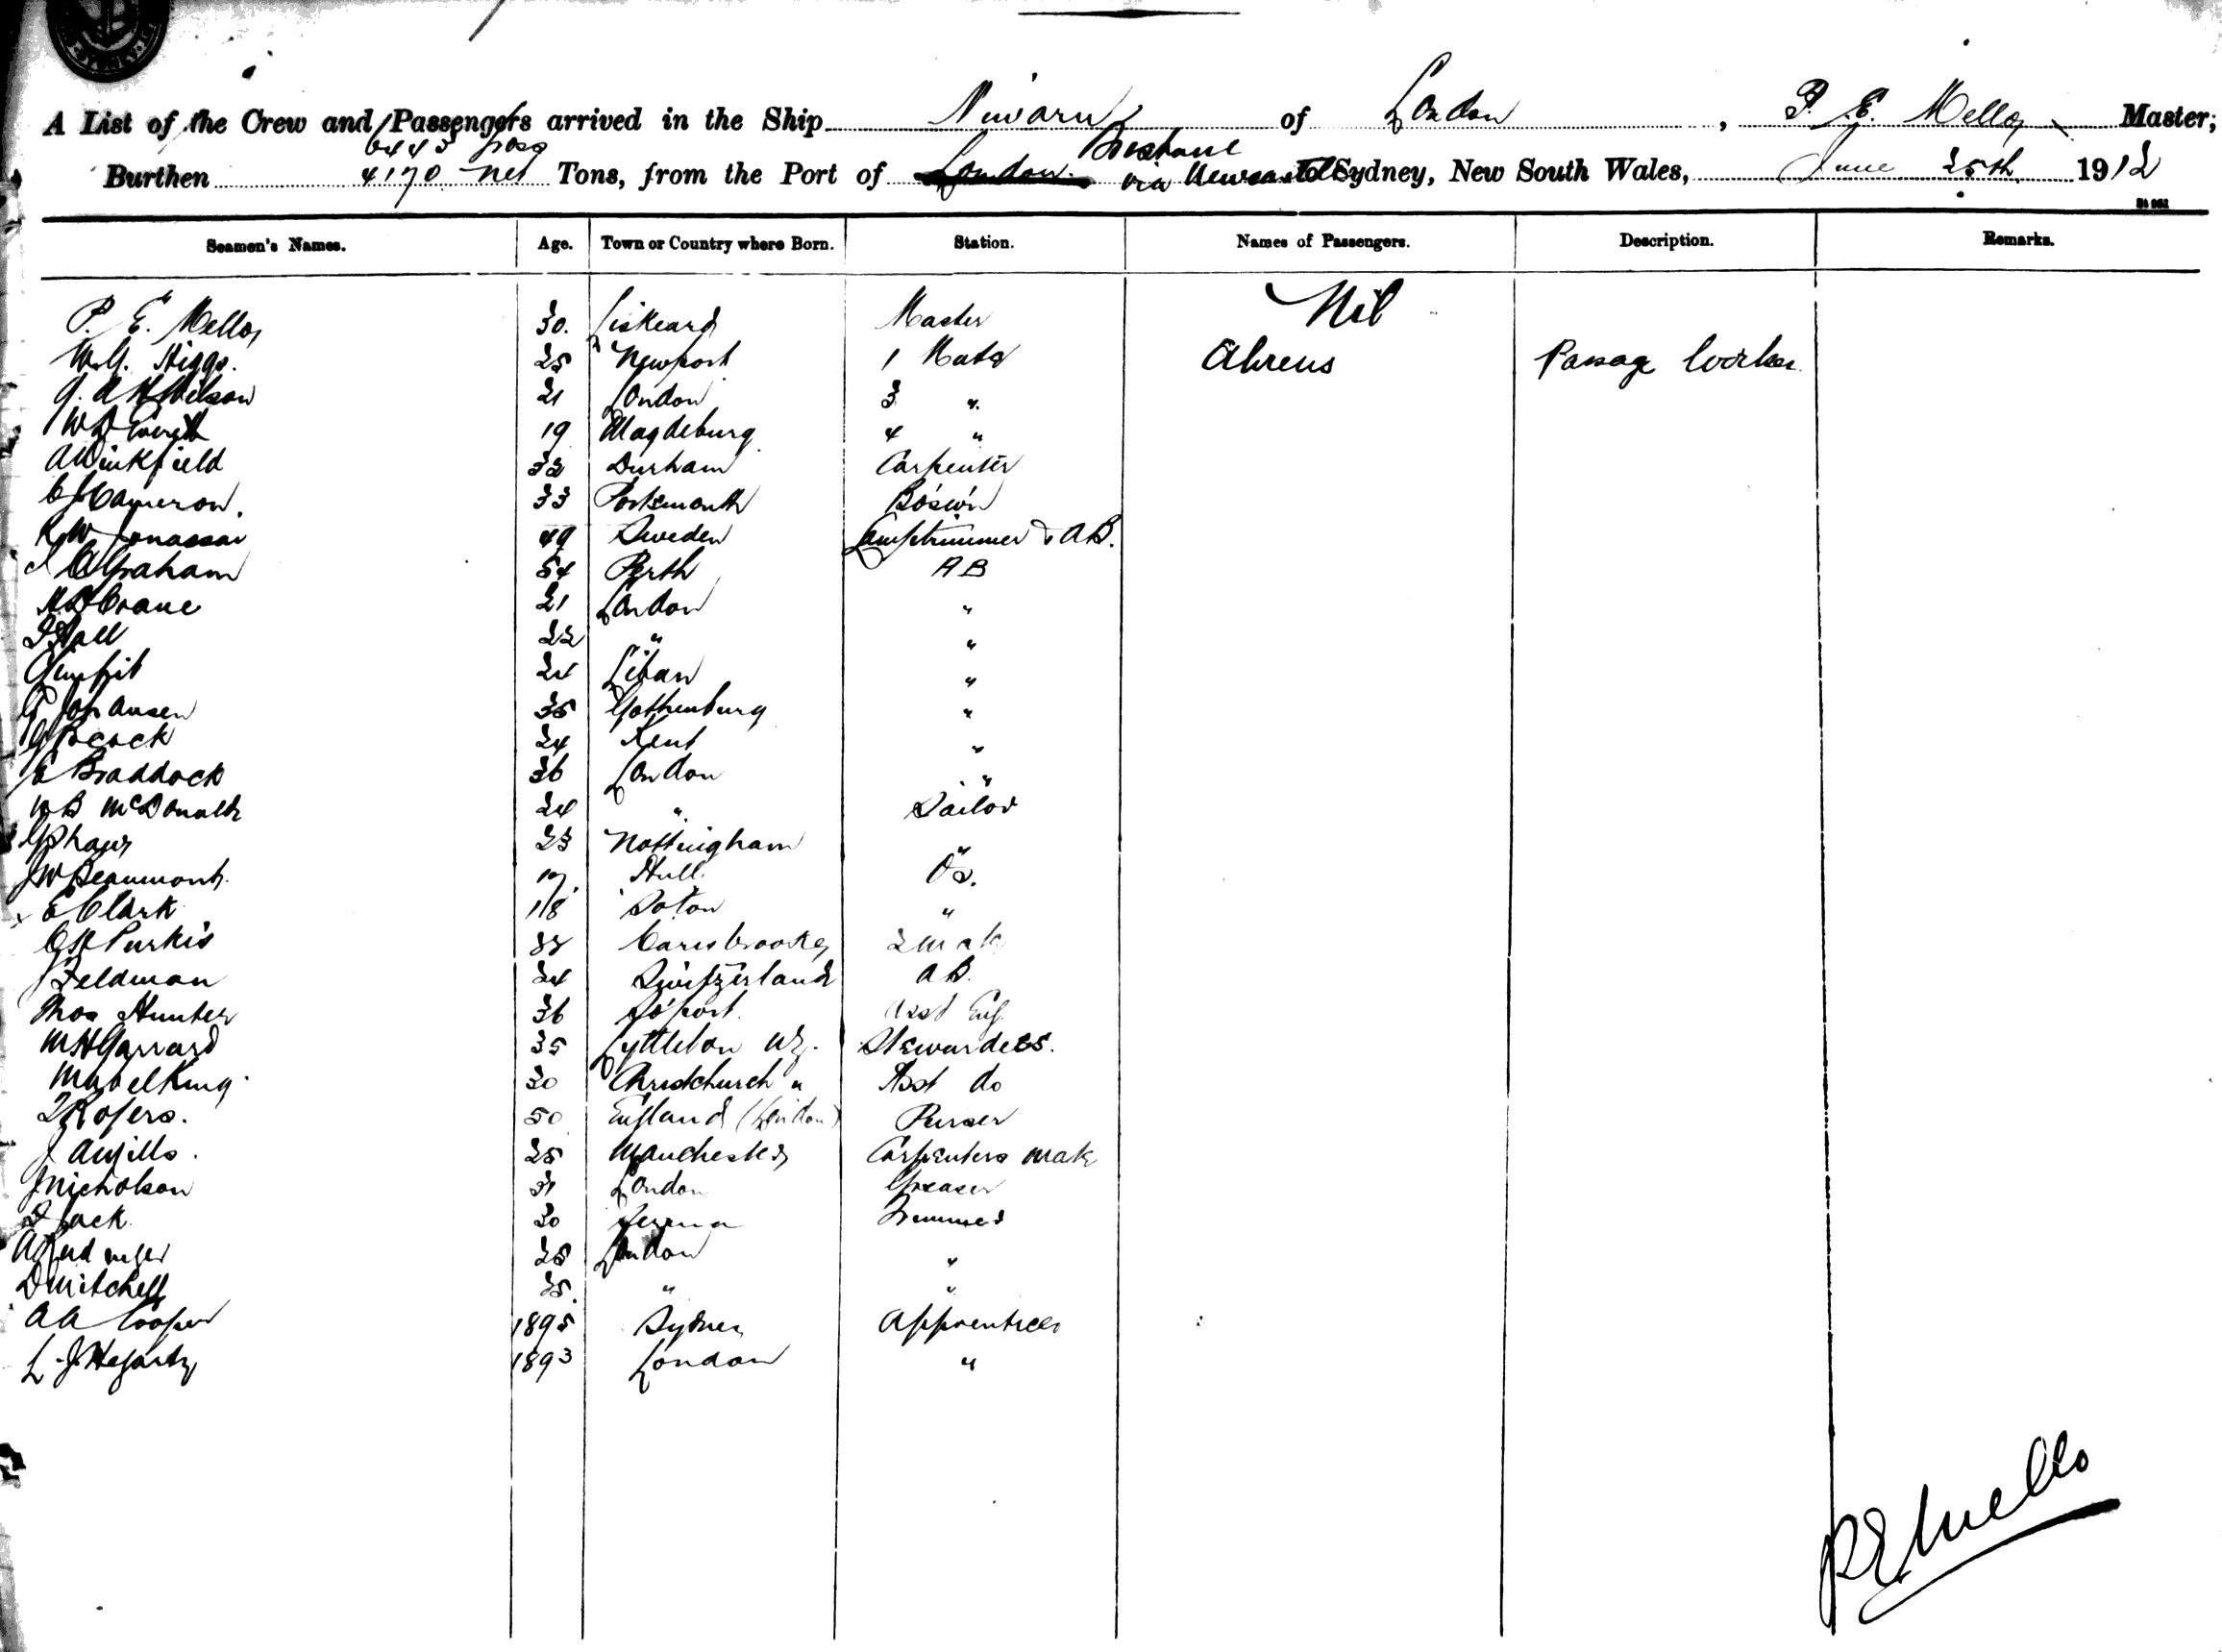 A List of the Crew and Passengers arrived in the Ship of London, P. E. Mello, Master;
6443 gross
Brisbane
Burthen 4170 net Tons, from the Port of London via Newcastle To Sydney, New South Wales, June 25th 1912
Seamen's Names. Age. Town or Country where Born. Station. Names of Passengers. Description. Remarks.
P. E. Mello, 30. Liskeard Master Nil
W.G. Higgs. 25 Newport 1 Mate Ahrens Passage Worker
G. A. H Wilson 21 London 3 "
19 Magdeburg 4 "
A Winkfield 33 Durham Carpenter
C J Cameron. 33 Portsmouth Bos'w'n
K W Jonassen 49 Sweden Lamptrimmer & AB.
C Graham 54 Perth AB
Crane 21 London "
Hall 22 " "
24 Libau "
G Johansen 35 Gothenburg "
G Pocock 24 Kent "
E Braddock 36 London "
W B McDonald 24 " Sailor
G Shaw 23 Nottingham "
J W Beaumont. 19. Hull. OS.
E Clark 18 Soton "
Purkis 33 Carisbrooke 2 Mate
J Feldman 24 Switzerland AB.
Thos Hunter 36 So'port. Asst Eng.
M H Garrard 35 Lyttleton NZ. Stewardess.
Mabel King. 30 Christchurch " Asst do
Rogers. 50 England (London) Purser
J A Mills. 25 Manchester Carpenters mate
J Nicholson 31 London Greaser
Jack 30 Trimmer
25 London "
D Mitchell 35. " "
A A Cooper 1895 Sydney Apprentices
L. J. Hegarty 1893 London "
P E Mello